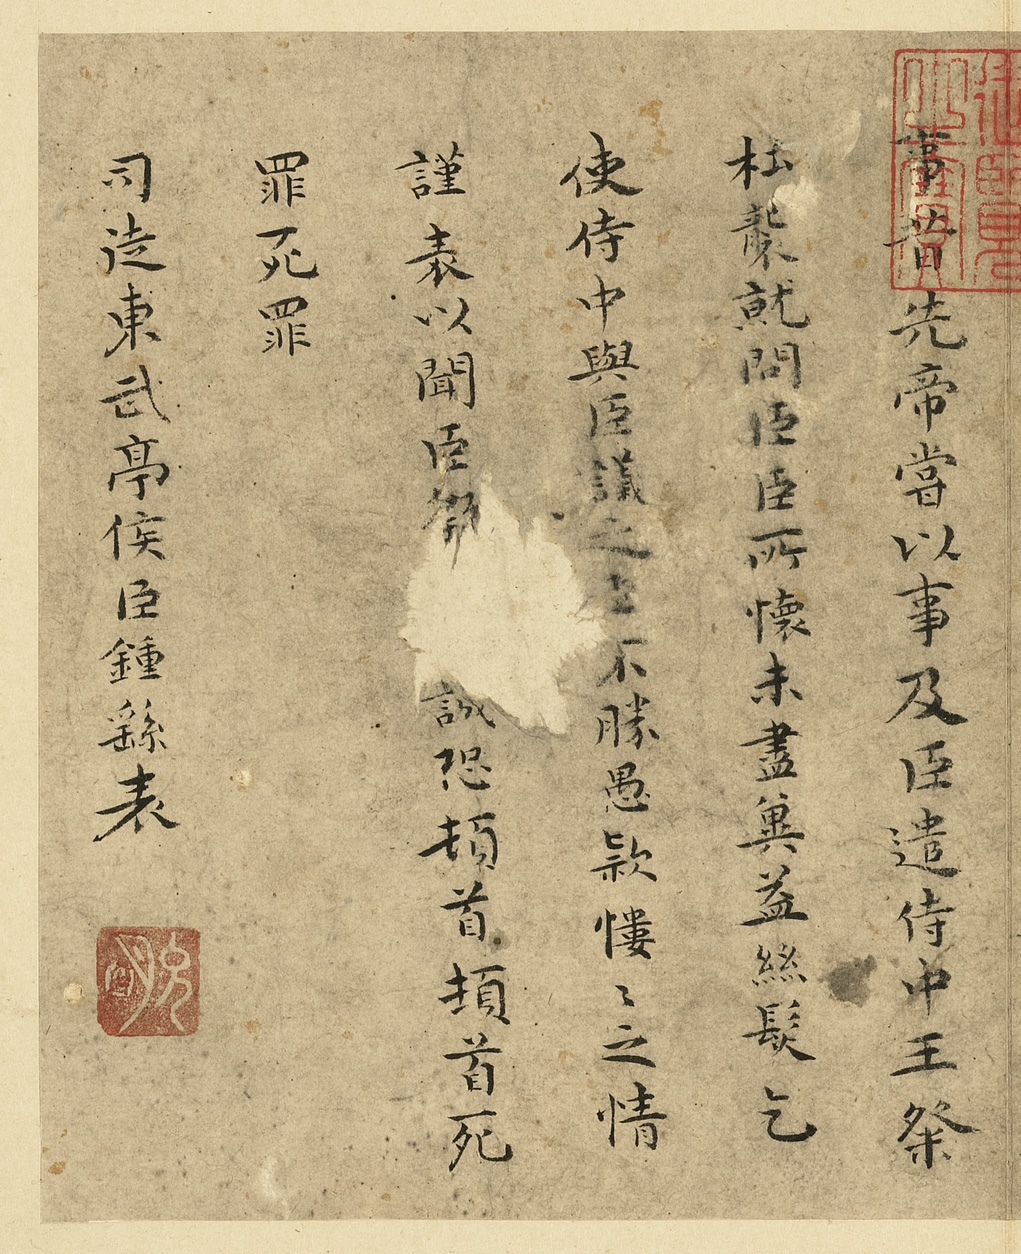 事昔先帝嘗以事及臣遣侍中王粲
杜襲就問臣臣所懷未盡冀益絲髮乞
使侍中與臣議之臣不勝愚款慺〻之情
謹表以聞臣繇誠恐頓首頓首死
罪死罪
司徒東武亭侯臣鍾繇表